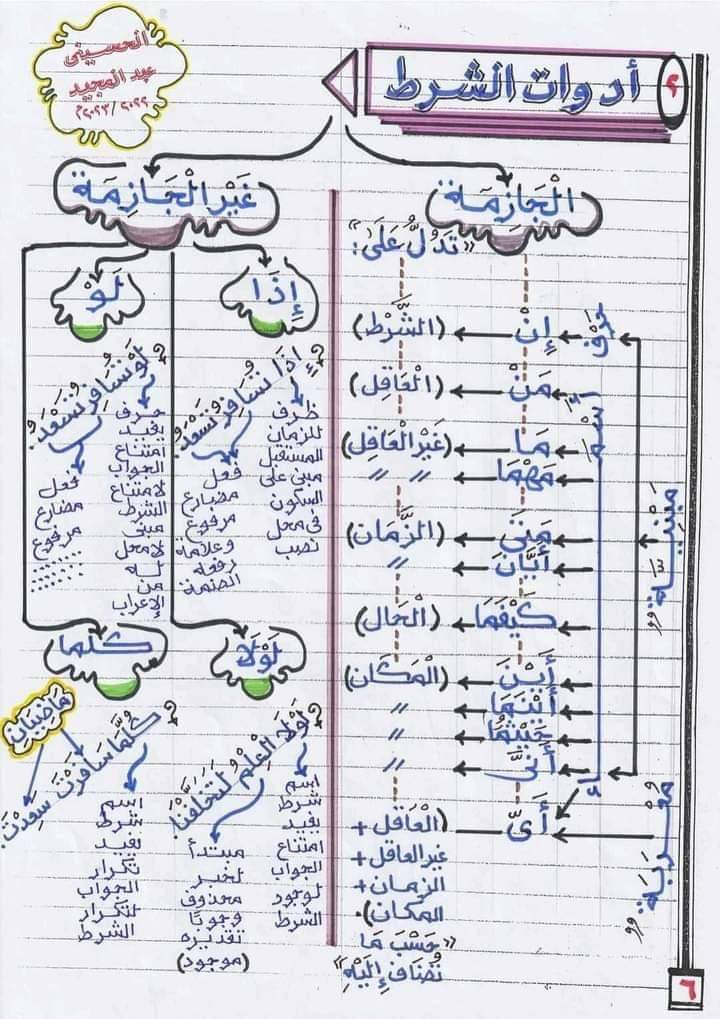 الحسيني
عبد المجيد
٢٠٢٢ / ٢٠٢٣م
٢
أدوات الشرط
الْجَازِمَة
غَيْر الْجَازِمَة
«تَدُلُّ عَلَى:»
حرْف
إِنْ
(الشَّرْط)
اسْم
مَنْ
(الْعَاقِل)
مَا
(غَيْر الْعَاقِل)
مَهْمَا
〃 〃
مَتَى
(الزَّمَان)
أَيَّانَ
〃
كَيْفَمَا
(الْحَال)
أَيْنَ
(الْمَكَان)
أَيْنَمَا
〃
حَيْثُمَا
〃
أَنَّى
〃
أَيّ
(العَاقل +
غير العاقل +
الزمان +
المكان).
«حَسْبَ مَا
تُضَاف إِلَيْهِ»
مَبْنِيَّة
مُعْرَبَة
إِذَا
إِذَا تُسَافِرُ تَسْعَدُ
ظرف
للزمان
المستقبل
مبنى على
السكون
فى محل
نصب
فعل
مضارع
مرفوع
وعلامة
رفعه
الضمة
لَوْ
لَوْ تُسَافِرُ تَسْعَدُ
حرف
يفيد
امتناع
الجواب
لامتناع
الشرط
مبنى
لا محل
له
من
الإعراب
فعل
مضارع
مرفوع
لَوْلَا
لَوْلَا الْعِلْمُ لَتَخَلَّفْنَا
اسم
شرط
يفيد
امتناع
الجواب
لوجود
الشرط
مبتدأ
لخبر
محذوف
وجوبًا
تقديره
(موجود)
كلما
ماضيان
كُلَّمَا سَافَرْتَ سَعِدْتَ
اسم
شرط
يفيد
تكرار
الجواب
لتكرار
الشرط
٦